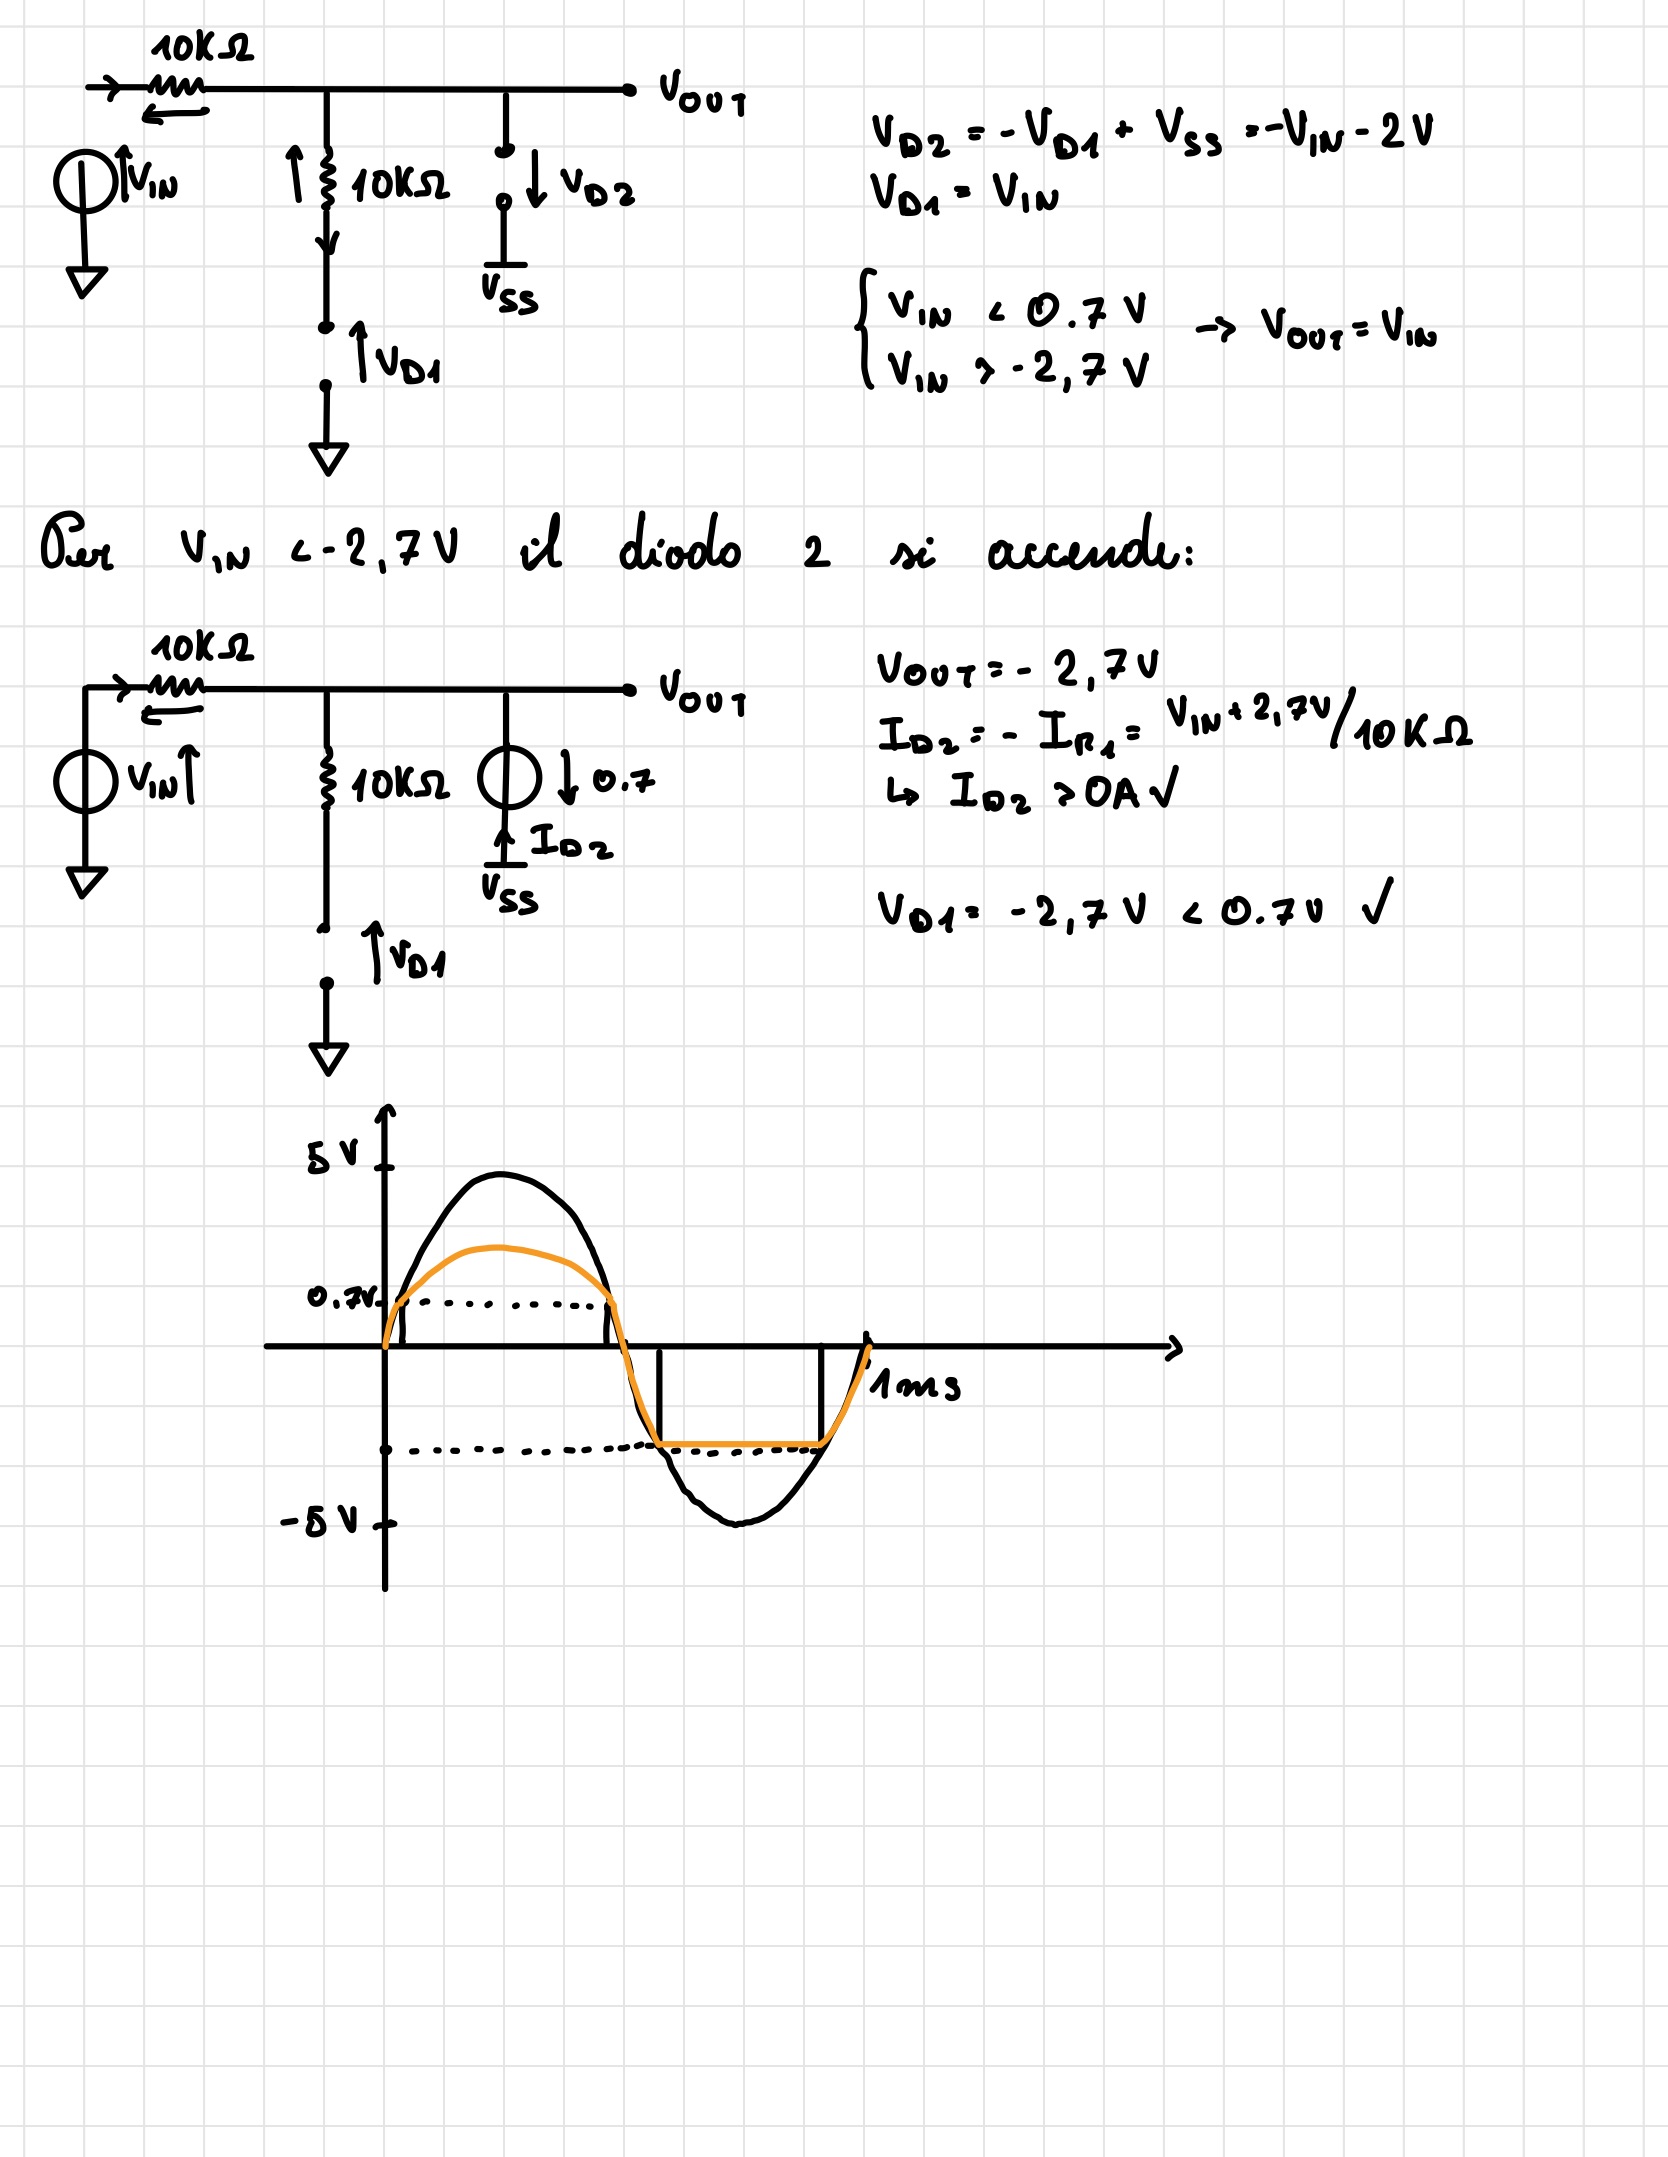 10KΩ
V_OUT
V_IN
10KΩ
V_D2
V_SS
V_D1
V_D2 = -V_D1 + V_SS = -V_IN - 2V
V_D1 = V_IN
V_IN < 0.7 V
V_IN > -2,7 V
→ V_OUT = V_IN
Per V_IN < -2,7V il diodo 2 si accende:
10KΩ
V_OUT
V_IN
10KΩ
0.7
I_D2
V_SS
V_D1
V_OUT = -2,7V
I_D2 = -I_R1 = V_IN + 2,7V/10KΩ
↳ I_D2 > 0A ✓
V_D1 = -2,7V < 0.7V ✓
5 V
0.7V
1ms
-5 V